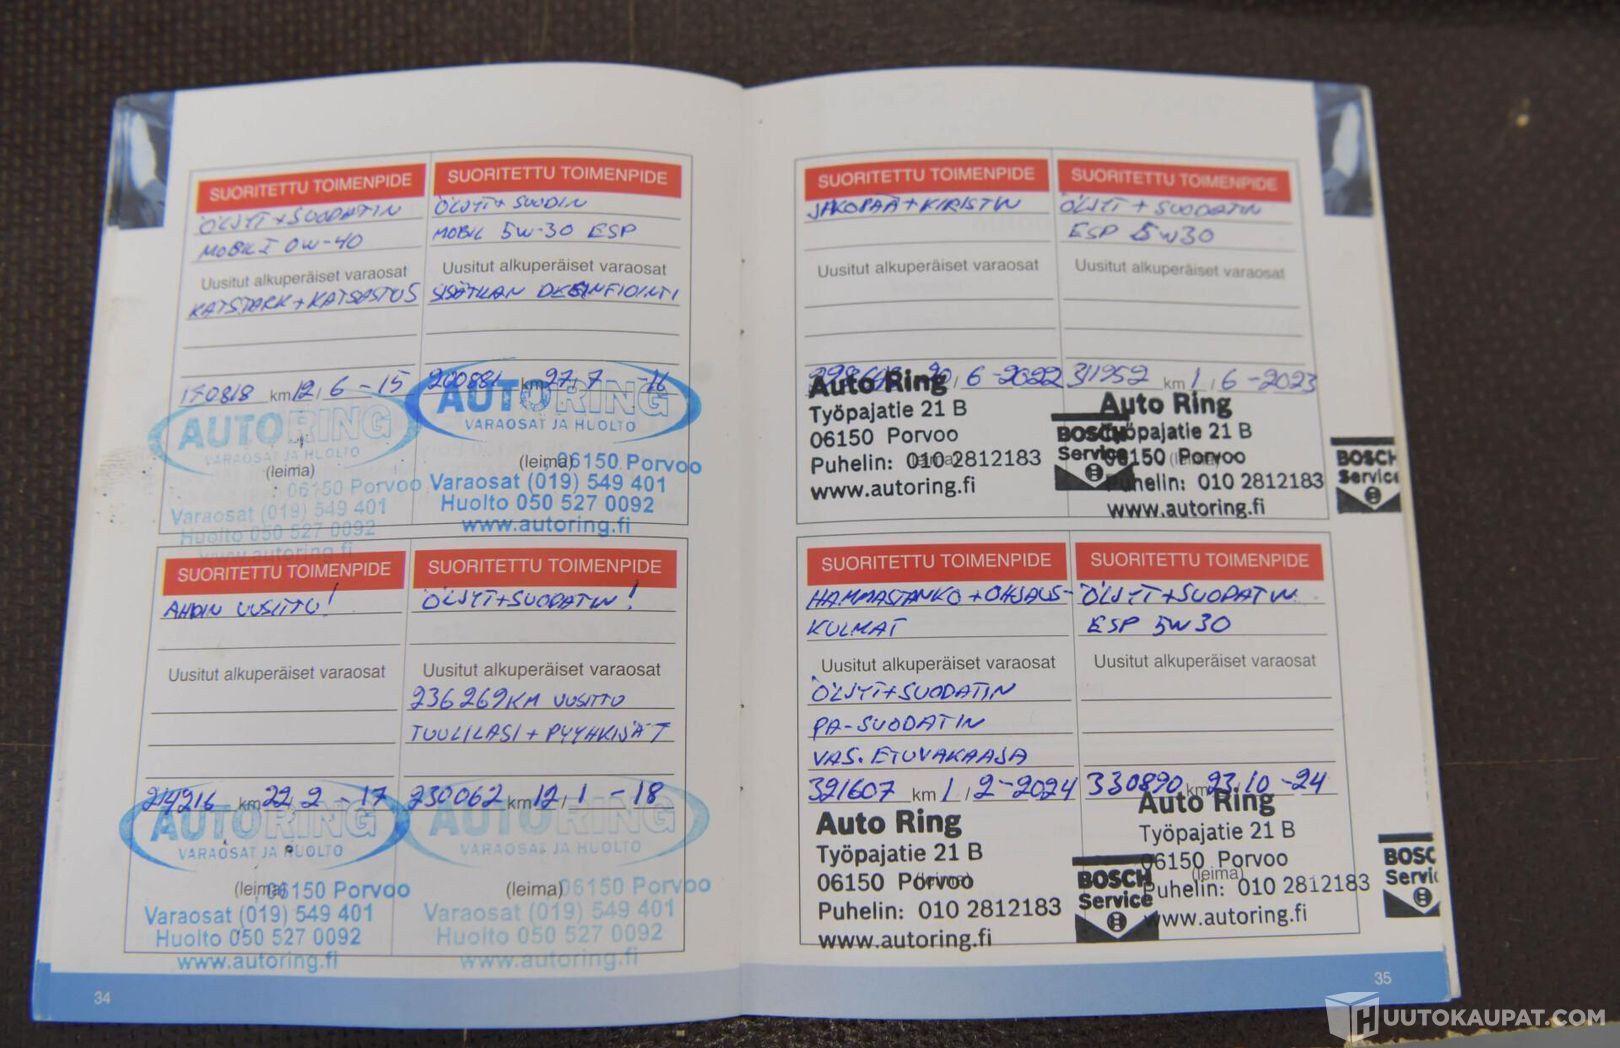 SUORITETTU TOIMENPIDE
ÖLJYT+SUODATIN
MOBIL 1 0W-40
Uusitut alkuperäiset varaosat
KATSTARK+KATSASTUS
km 12/6-15
AUTORING
VARAOSAT JA HUOLTO
(leima)
06150 Porvoo
Varaosat (019) 549 401
Huolto 050 527 0092
www.autoring.fi
SUORITETTU TOIMENPIDE
ÖLJYT+SUODIN
MOBIL 5W-30 ESP
Uusitut alkuperäiset varaosat
SISÄTILAN DESINFIOINTI
200881 km 27/7 -16
AUTORING
VARAOSAT JA HUOLTO
(leima)
06150 Porvoo
Varaosat (019) 549 401
Huolto 050 527 0092
www.autoring.fi
SUORITETTU TOIMENPIDE
AHDIN UUSITTU!
Uusitut alkuperäiset varaosat
214216 km 22/2 -17
AUTORING
VARAOSAT JA HUOLTO
(leima)
06150 Porvoo
Varaosat (019) 549 401
Huolto 050 527 0092
www.autoring.fi
SUORITETTU TOIMENPIDE
ÖLJYT+SUODATIN!
Uusitut alkuperäiset varaosat
236269KM UUSITTU
TUULILASI+PYYHKIJÄT
230062 km 12/1 -18
AUTORING
VARAOSAT JA HUOLTO
(leima)
06150 Porvoo
Varaosat (019) 549 401
Huolto 050 527 0092
www.autoring.fi
34
SUORITETTU TOIMENPIDE
JAKOPÄÄ+KIRISTIN
Uusitut alkuperäiset varaosat
20/6-2022
Auto Ring
Työpajatie 21 B
06150 Porvoo
Puhelin: 010 2812183
www.autoring.fi
BOSCH
Service
SUORITETTU TOIMENPIDE
ÖLJYT+SUODATIN
ESP 5W30
Uusitut alkuperäiset varaosat
311952 km 1/6-2023
Auto Ring
Työpajatie 21 B
06150 Porvoo
Puhelin: 010 2812183
www.autoring.fi
BOSCH
Service
SUORITETTU TOIMENPIDE
HAMMASTANKO+OHJAUS-
KULMAT
Uusitut alkuperäiset varaosat
ÖLJYT+SUODATIN
PA-SUODATIN
VAS. ETUVAKAAJA
321607 km 1/2-2024
Auto Ring
Työpajatie 21 B
06150 Porvoo
(leima)
Puhelin: 010 2812183
www.autoring.fi
BOSCH
Service
SUORITETTU TOIMENPIDE
ÖLJYT+SUODATIN
ESP 5W30
Uusitut alkuperäiset varaosat
330890 km 23.10 -24
Auto Ring
Työpajatie 21 B
06150 Porvoo
(leima)
Puhelin: 010 2812183
www.autoring.fi
BOSC
Servi
35
HUUTOKAUPAT.COM